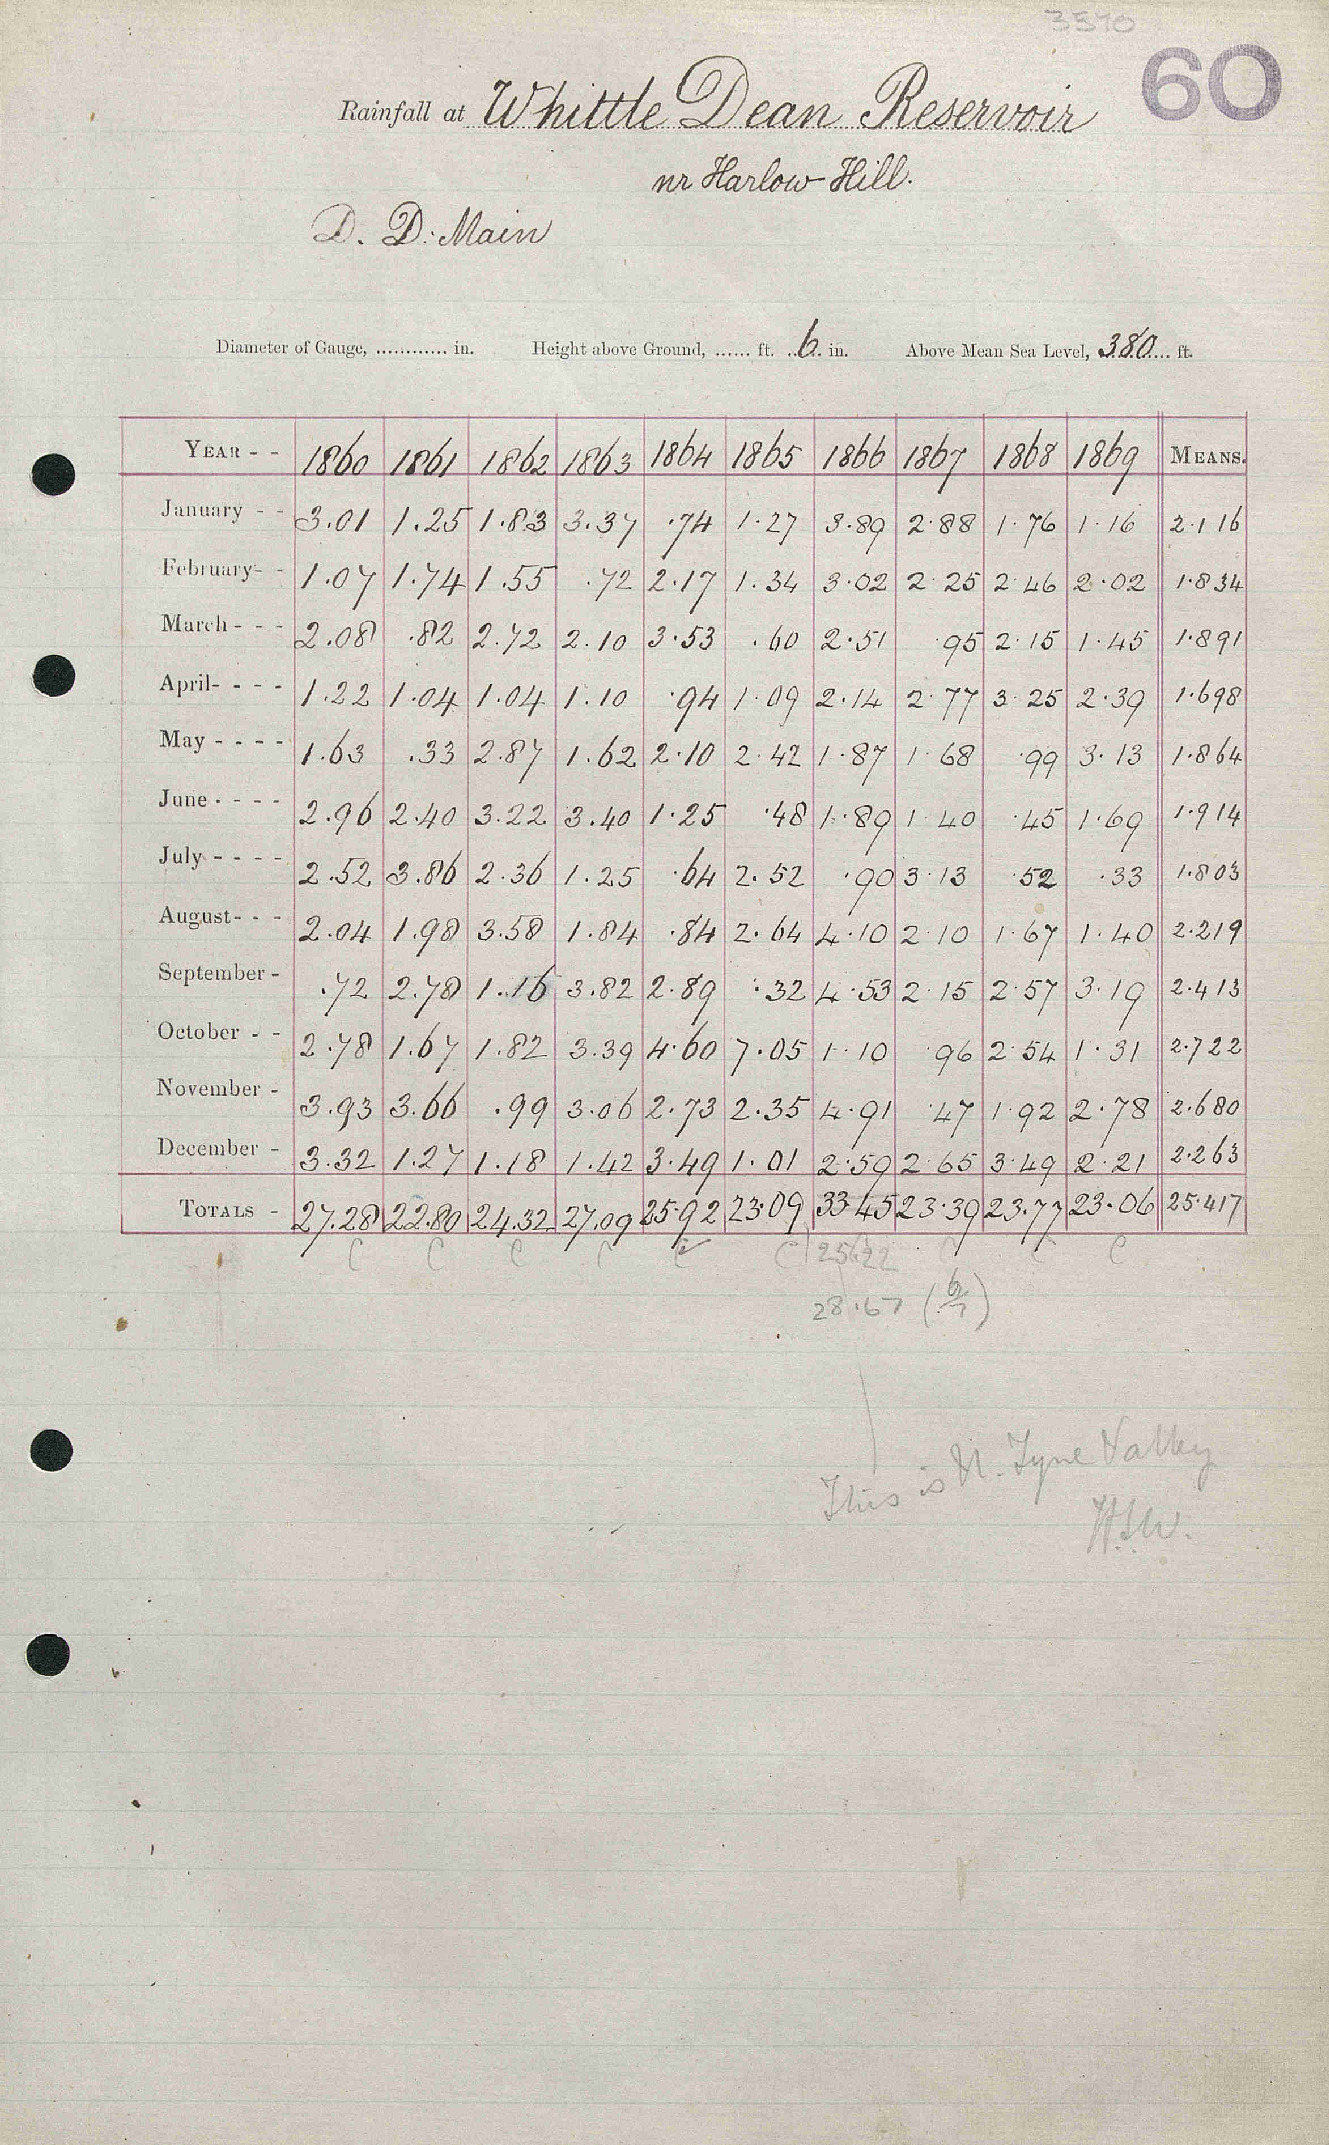 3570
60
Rainfall at Whittle Dean Reservoir
nr Harlow Hill.
D. D. Main
Diameter of Gauge, ............ in. Height above Ground, ...... ft. ..6.. in. Above Mean Sea Level, 380... ft.
YEAR - - 1860 1861 1862 1863 1864 1865 1866 1867 1868 1869 MEANS.
January - - 3.01 1.25 1.83 3.37 .74 1.27 3.89 2.88 1.76 1.16 2.116
February - - 1.07 1.74 1.55 .72 2.17 1.34 3.02 2.25 2.46 2.02 1.834
March - - - 2.08 .82 2.72 2.10 3.53 .60 2.51 .95 2.15 1.45 1.891
April - - - - 1.22 1.04 1.04 1.10 .94 1.09 2.14 2.77 3.25 2.39 1.698
May - - - - 1.63 .33 2.87 1.62 2.10 2.42 1.87 1.68 .99 3.13 1.864
June - - - - 2.96 2.40 3.22 3.40 1.25 .48 1.89 1.40 .45 1.69 1.914
July - - - - 2.52 3.86 2.36 1.25 .64 2.52 .90 3.13 .52 .33 1.803
August - - - 2.04 1.98 3.58 1.84 .84 2.64 4.10 2.10 1.67 1.40 2.219
September - .72 2.78 1.16 3.82 2.89 .32 4.53 2.15 2.57 3.19 2.413
October - - 2.78 1.67 1.82 3.39 4.60 7.05 1.10 .96 2.54 1.31 2.722
November - 3.93 3.66 .99 3.06 2.73 2.35 4.91 .47 1.92 2.78 2.680
December - 3.32 1.27 1.18 1.42 3.49 1.01 2.59 2.65 3.49 2.21 2.263
TOTALS - 27.28 22.80 24.32 27.09 25.92 23.09 33.45 23.39 23.77 23.06 25.417
C C C C C C C C C
28.67 (6/7)
This is N. Tyne Valley